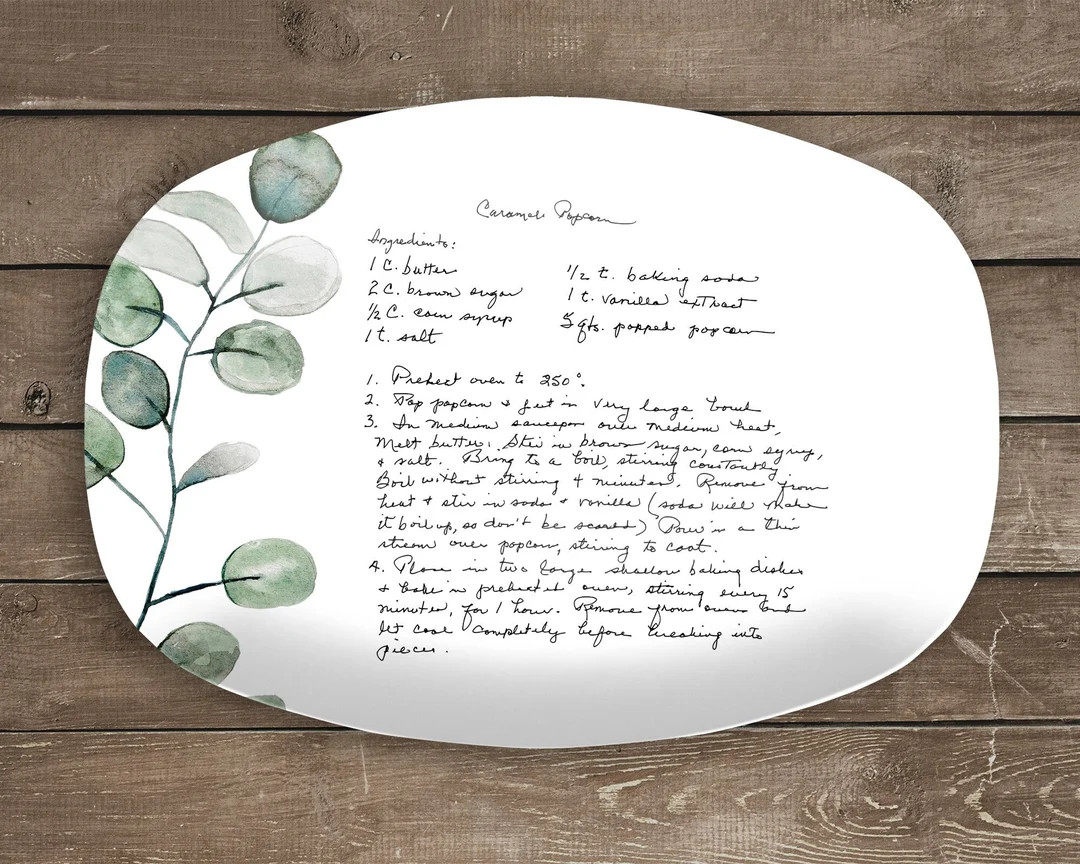 Caramel Popcorn
Ingredients:
1 C. butter
2 C. brown sugar
1/2 C. corn syrup
1 t. salt
1/2 t. baking soda
1 t. vanilla extract
5 qts. popped popcorn
1. Preheat oven to 250°.
2. Pop popcorn & put in very large bowl
3. In medium saucepan over medium heat,
Melt butter. Stir in brown sugar, corn syrup,
& salt. Bring to a boil, stirring constantly
Boil without stirring 4 minutes. Remove from
heat & stir in soda & vanilla (soda will make
it boil up, so don't be scared) Pour in a thin
stream over popcorn, stirring to coat.
4. Place in two large shallow baking dishes
& bake in preheated oven, stirring every 15
minutes, for 1 hour. Remove from oven and
let cool completely before breaking into
pieces.